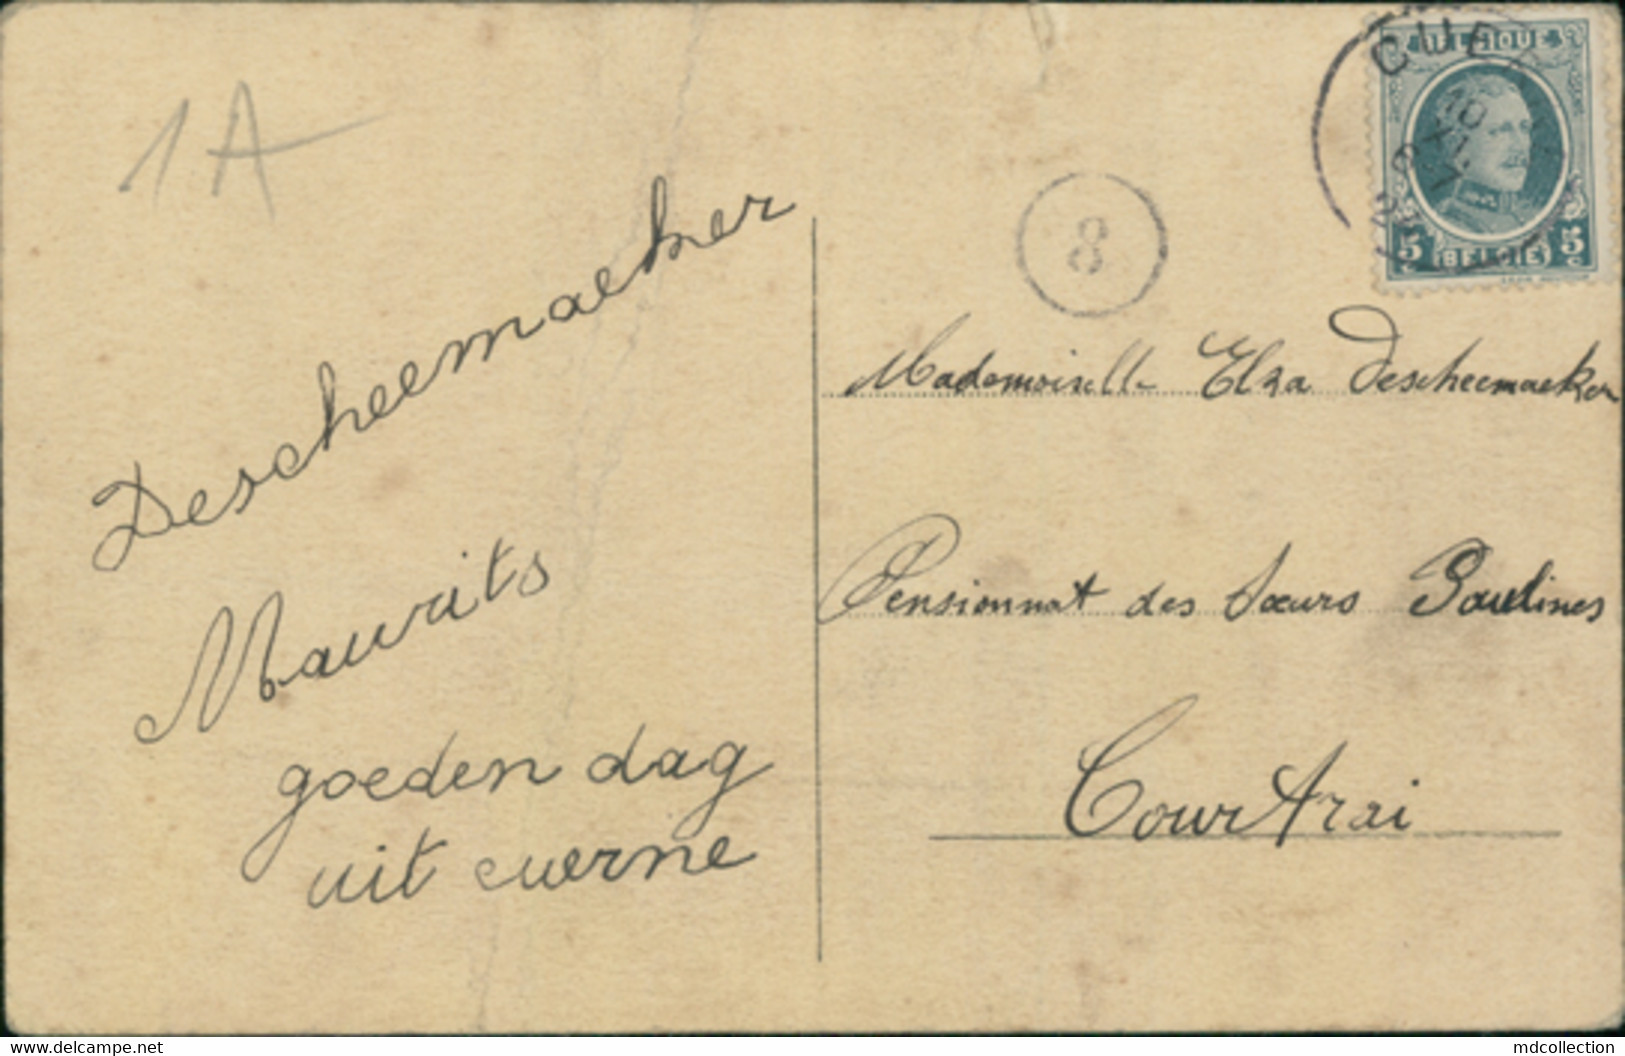 1A
Descheemaeker
Maurits
goeden dag
uit cuerne
8
CUE
10
XII
BELGIQUE
5 (BELGIË) 5
C C
Mademoiselle Elza Descheemaeker
Pensionnat des Sœurs Paulines
CourTrai
https://www.delcampe.net
mdcollection